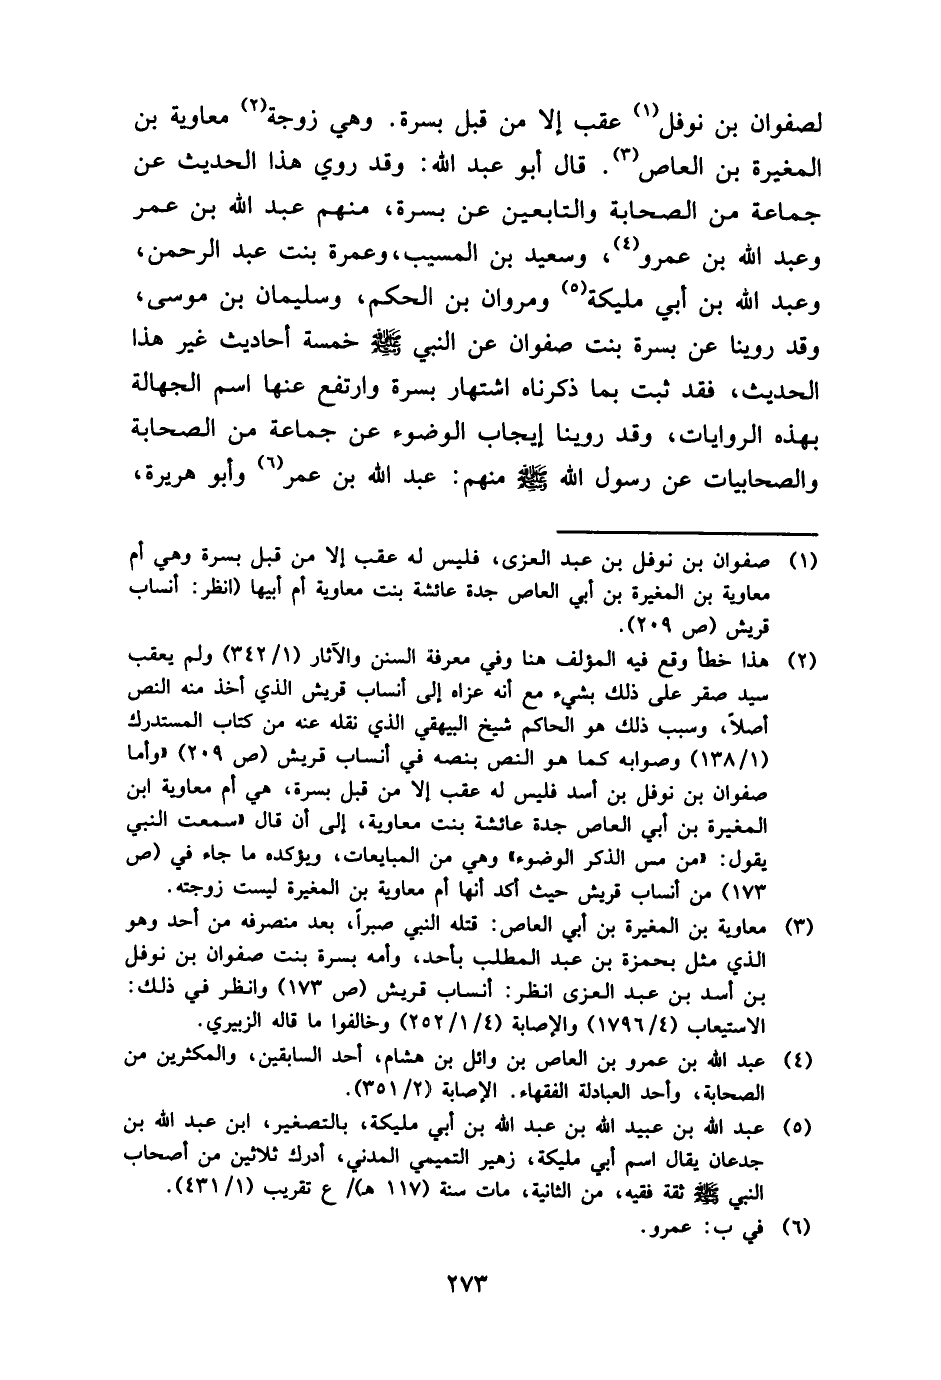 لصفوان بن نوفل(١) عقب إلا من قبل بسرة. وهي زوجة(٢) معاوية بن
المغيرة بن العاص(٣). قال أبو عبد الله: وقد روي هذا الحديث عن
جماعة من الصحابة والتابعين عن بسرة، منهم عبد الله بن عمر
وعبد الله بن عمرو(٤)، وسعيد بن المسيب، وعمرة بنت عبد الرحمن،
وعبد الله بن أبي مليكة(٥) ومروان بن الحكم، وسليمان بن موسى،
وقد روينا عن بسرة بنت صفوان عن النبي ﷺ خمسة أحاديث غير هذا
الحديث، فقد ثبت بما ذكرناه اشتهار بسرة وارتفع عنها اسم الجهالة
بهذه الروايات، وقد روينا إيجاب الوضوء عن جماعة من الصحابة
والصحابيات عن رسول الله ﷺ منهم: عبد الله بن عمر(٦) وأبو هريرة،
(١) صفوان بن نوفل بن عبد العزى، فليس له عقب إلا من قبل بسرة وهي أم
معاوية بن المغيرة بن أبي العاص جدة عائشة بنت معاوية أم أبيها (انظر: أنساب
قريش (ص ٢٠٩).
(٢) هذا خطأ وقع فيه المؤلف هنا وفي معرفة السنن والآثار (٣٤٢/١) ولم يعقب
سيد صقر على ذلك بشيء مع أنه عزاه إلى أنساب قريش الذي أخذ منه النص
أصلاً، وسبب ذلك هو الحاكم شيخ البيهقي الذي نقله عنه من كتاب المستدرك
(١٣٨/١) وصوابه كما هو النص بنصه في أنساب قريش (ص ٢٠٩) «وأما
صفوان بن نوفل بن أسد فليس له عقب إلا من قبل بسرة، هي أم معاوية ابن
المغيرة بن أبي العاص جدة عائشة بنت معاوية، إلى أن قال «سمعت النبي
يقول: «من مس الذكر الوضوء» وهي من المبايعات، ويؤكده ما جاء في (ص
١٧٣) من أنساب قريش حيث أكد أنها أم معاوية بن المغيرة ليست زوجته.
(٣) معاوية بن المغيرة بن أبي العاص: قتله النبي صبراً، بعد منصرفه من أحد وهو
الذي مثل بحمزة بن عبد المطلب بأحد، وأمه بسرة بنت صفوان بن نوفل
بن أسد بن عبد العزى انظر: أنساب قريش (ص ١٧٣) وانظر في ذلك:
الاستيعاب (١٧٩٦/٤) والإصابة (٢٥٢/١/٤) وخالفوا ما قاله الزبيري.
(٤) عبد الله بن عمرو بن العاص بن وائل بن هشام، أحد السابقين، والمكثرين من
الصحابة، وأحد العبادلة الفقهاء. الإصابة (٣٥١/٢).
(٥) عبد الله بن عبيد الله بن عبد الله بن أبي مليكة، بالتصغير، ابن عبد الله بن
جدعان يقال اسم أبي مليكة، زهير التميمي المدني، أدرك ثلاثين من أصحاب
النبي ﷺ ثقة فقيه، من الثانية، مات سنة (١١٧ هـ)/ ع تقريب (٤٣١/١).
(٦) في ب: عمرو.
٢٧٣